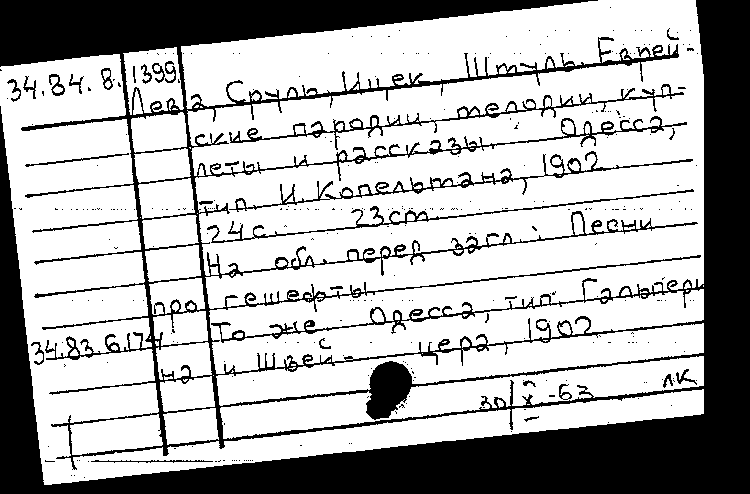 34.84.8.1399.
Лева, Сруль, Ицек, Штуль. Еврей-
ские пародии, мелодии, куп-
леты и рассказы. Одесса,
тип. И. Копельмана, 1902.
24с. 23см.
На обл. перед загл.: Песни
про гешефты.
34.83.6.174 То же. Одесса, тип. Гальпери
на и Швей- цера, 1902
30 X -63 ЛК